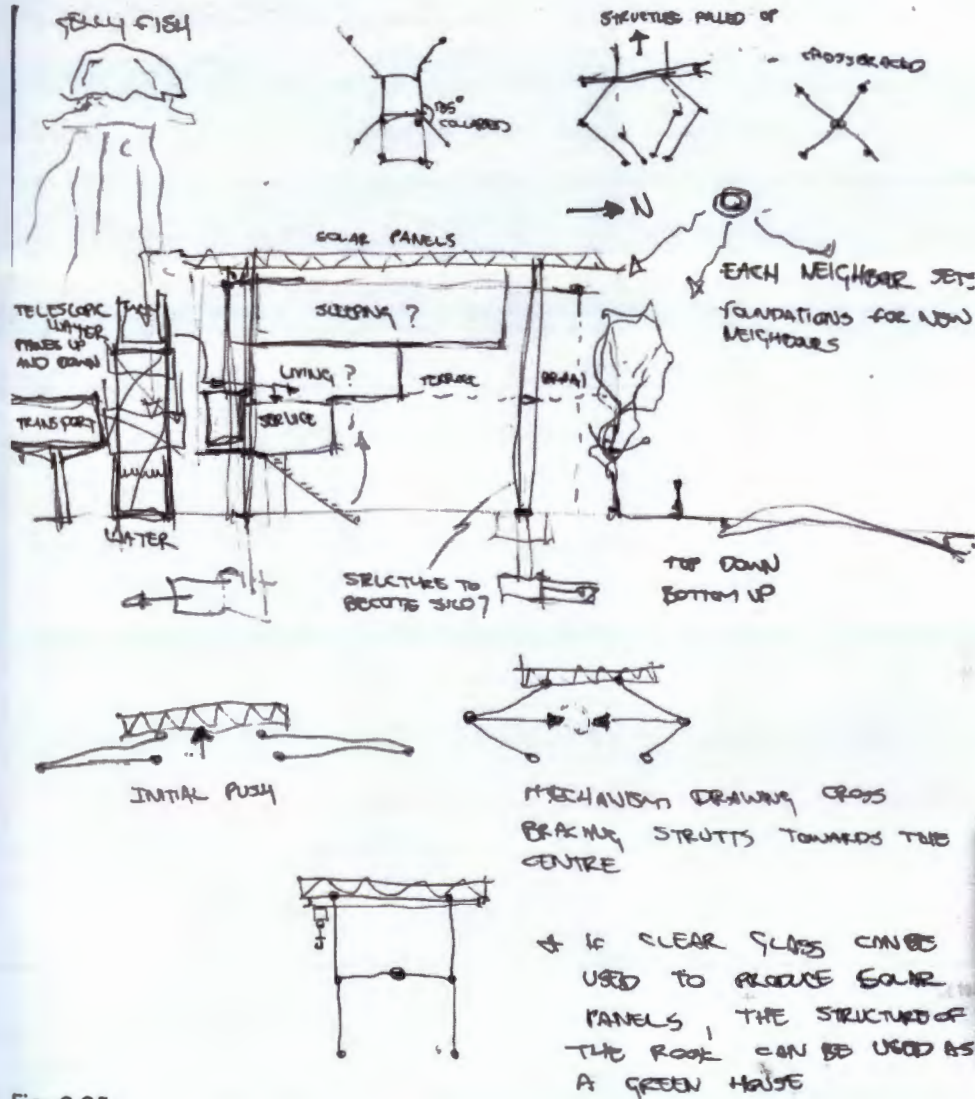 JELLY FISH
STRUCTURE PULLED UP
CROSSBRACED
135°
COLLAPSED
N
SOLAR PANELS
EACH NEIGHBOR SETS
FOUNDATIONS FOR NEW
NEIGHBOURS
TELESCOPIC
WATER
UP
AND DOWN
SLEEPING ?
LIVING ?
TERRACE
TRANSPORT
SERVICE
WATER
STRUCTURE TO
BECOME SILO?
TOP DOWN
BOTTOM UP
INITIAL PUSH
MECHANISM DRAWING CROSS
BRACING STRUTTS TOWARDS THE
CENTRE
IF CLEAR GLASS CAN BE
USED TO PRODUCE SOLAR
PANELS, THE STRUCTURE OF
THE ROOF CAN BE USED AS
A GREEN HOUSE